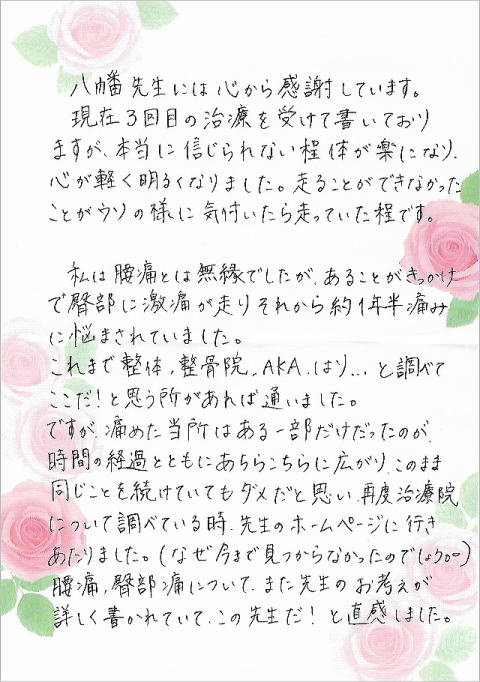 八幡先生には心から感謝しています。
現在3回目の治療を受けて書いており
ますが、本当に信じられない程体が楽になり、
心が軽く明るくなりました。走ることができなかった
ことがウソの様に気付いたら走っていた程です。
私は腰痛とは無縁でしたが、あることがきっかけ
で臀部に激痛が走りそれから約1年半痛み
に悩まされていました。
これまで整体、整骨院、AKA、はり...と調べて
ここだ!と思う所があれば通いました。
ですが、痛めた当所はある一部だけだったのが、
時間の経過とともにあちらこちらに広がり、このまま
同じことを続けていてもダメだと思い、再度治療院
について調べている時、先生のホームページに行き
あたりました。(なぜ今まで見つからなかったのでしょうか〜)
腰痛、臀部痛について、また先生のお考えが
詳しく書かれていて、この先生だ!と直感しました。